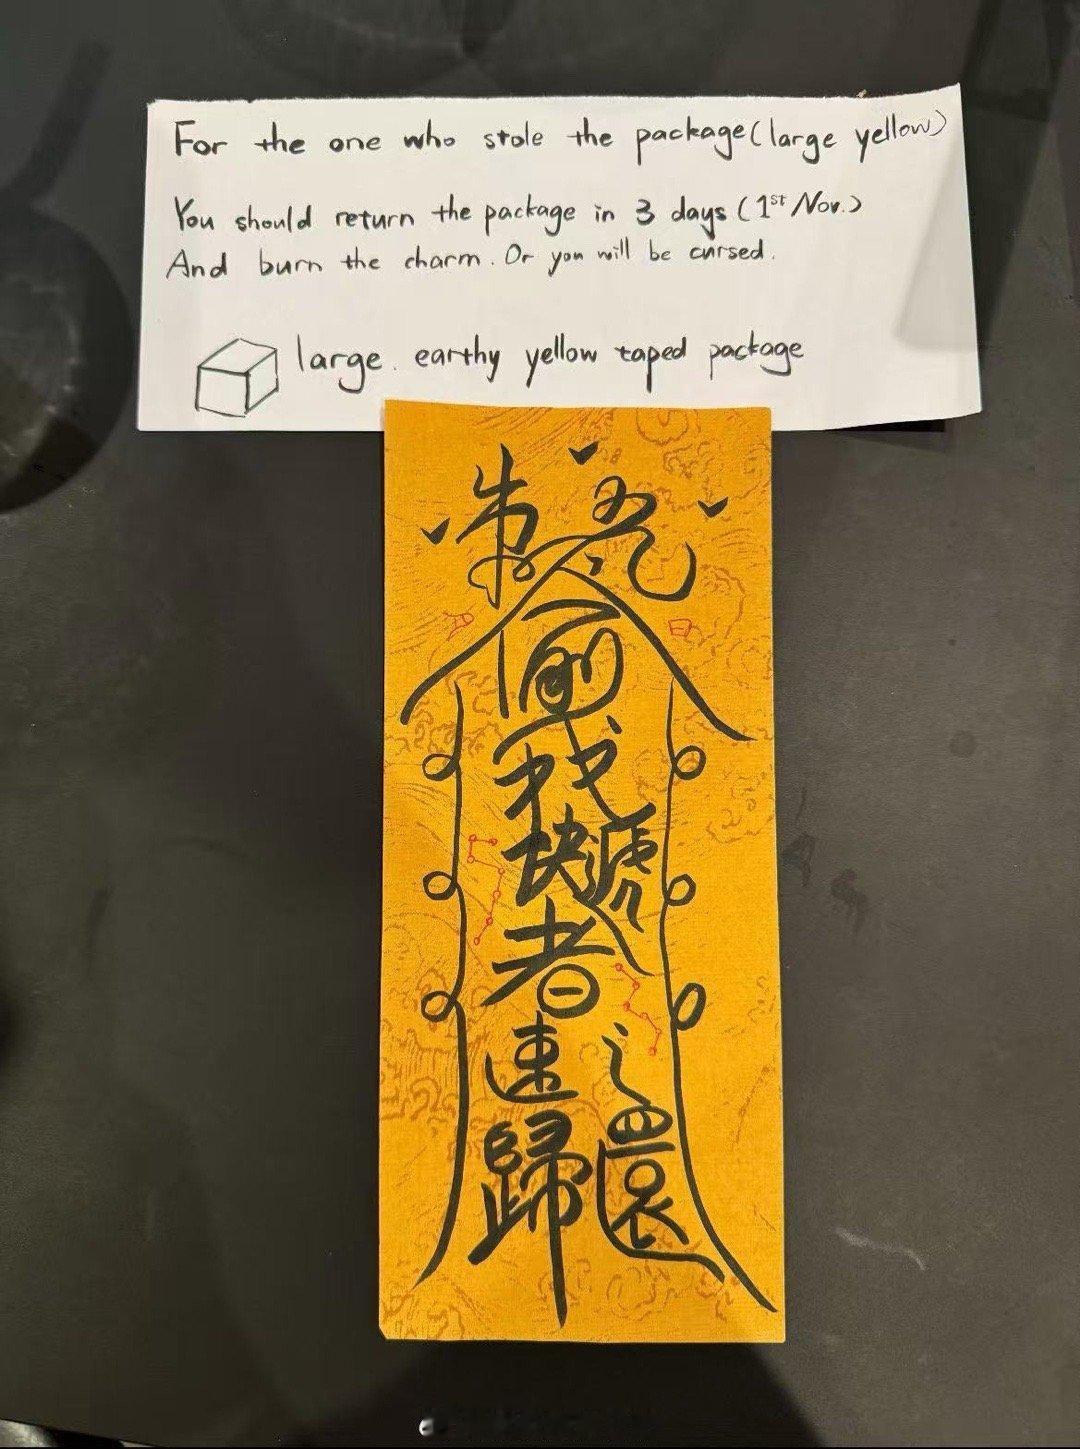 For the one who stole the package (large yellow)
You should return the package in 3 days (1st Nov.)
And burn the charm. Or you will be cursed.
large. earthy yellow taped package
偷
我
快遞
者
速
歸還